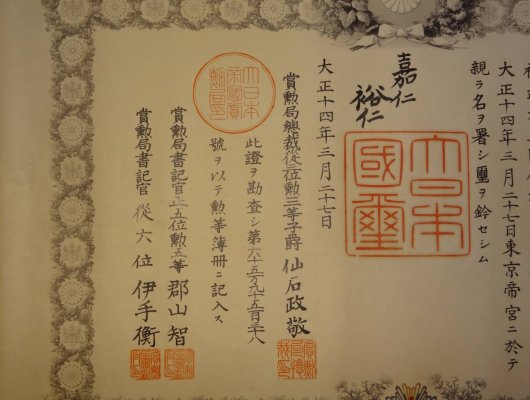 大正十四年三月二十七日東京帝宮ニ於テ
親ラ名ヲ署シ璽ヲ鈐セシム
嘉仁
裕仁
大日本國璽
大正十四年三月二十七日
賞勲局總裁從三位勲三等子爵 仙石政敬
大日本帝國賞勲局印
此證ヲ勘査シ第六十五万九千五百三十八
號ヲ以テ勲等簿冊ニ記入ス
賞勲局書記官正五位勲五等 郡山智
賞勲局書記官 從六位 伊手衡